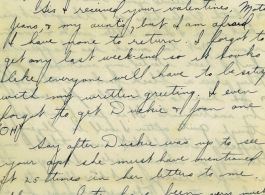 Yes I received your valentines, Mot
Jeans, & my aunts, but I am afraid
I have none to return. I forgot to
get any last weekend so it looks
like everyone will have to be satis
with my written greeting. I even
forgot to get Duckie & Joan one
OH!
Say after Duckie was up to see
your apt she must have mentioned
it 25 times in her letters to me.
been very much